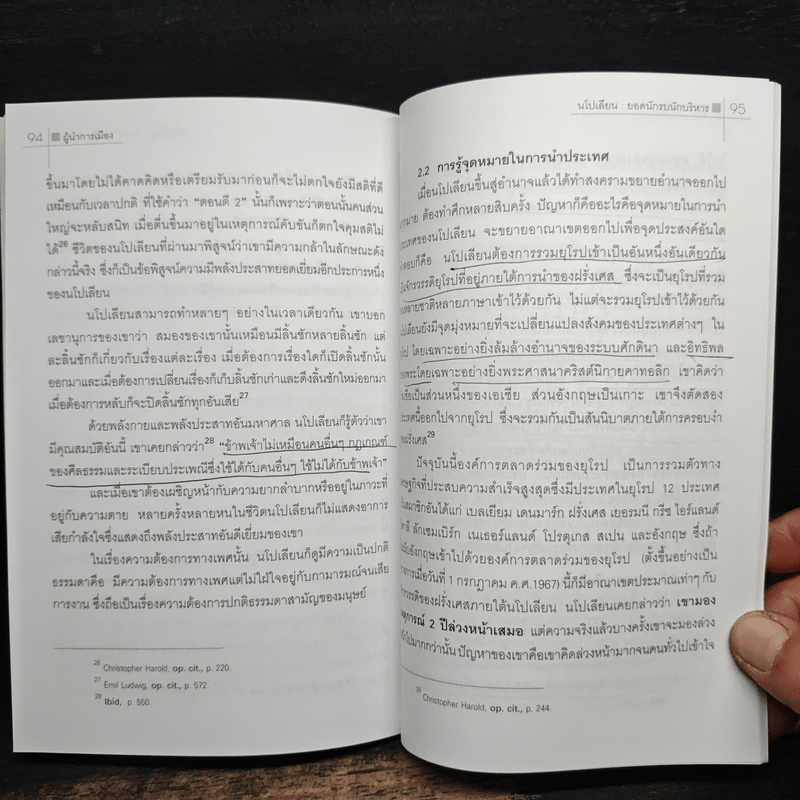 94 ผู้นำการเมือง
ขึ้นมาโดยไม่ได้คาดคิดหรือเตรียมรับมาก่อนก็จะไม่ตกใจยังมีสติที่ดี
เหมือนกับเวลาปกติ ที่ใช้คำว่า "ตอนตี 2" นั้นก็เพราะว่าตอนนั้นคนส่วน
ใหญ่จะหลับสนิท เมื่อตื่นขึ้นมาอยู่ในเหตุการณ์คับขันก็ตกใจคุมสติไม่
ได้26 ชีวิตของนโปเลียนที่ผ่านมาพิสูจน์ว่าเขามีความกล้าในลักษณะดัง
กล่าวนี้จริง ซึ่งก็เป็นข้อพิสูจน์ความมีพลังประสาทยอดเยี่ยมอีกประการหนึ่ง
ของนโปเลียน
นโปเลียนสามารถทำหลายๆ อย่างในเวลาเดียวกัน เขาบอก
เลขานุการของเขาว่า สมองของเขานั้นเหมือนมีลิ้นชักหลายลิ้นชัก แต่
ละลิ้นชักก็เกี่ยวกับเรื่องแต่ละเรื่อง เมื่อต้องการเรื่องใดก็เปิดลิ้นชักนั้น
ออกมาและเมื่อต้องการเปลี่ยนเรื่องก็เก็บลิ้นชักเก่าและดึงลิ้นชักใหม่ออกมา
เมื่อต้องการหลับก็จะปิดลิ้นชักทุกอันเสีย27
ด้วยพลังกายและพลังประสาทอันมหาศาล นโปเลียนก็รู้ตัวว่าเขา
มีคุณสมบัติอันนี้ เขาเคยกล่าวว่า28 "ข้าพเจ้าไม่เหมือนคนอื่นๆ กฎเกณฑ์
ของศีลธรรมและระเบียบประเพณีซึ่งใช้ได้กับคนอื่นๆ ใช้ไม่ได้กับข้าพเจ้า"
และเมื่อเขาต้องเผชิญหน้ากับความยากลำบากหรืออยู่ในภาวะที่
อยู่กับความตาย หลายครั้งหลายหนในชีวิตนโปเลียนก็ไม่แสดงอาการ
เสียกำลังใจซึ่งแสดงถึงพลังประสาทอันดีเยี่ยมของเขา
ในเรื่องความต้องการทางเพศนั้น นโปเลียนก็ดูมีความเป็นปกติ
ธรรมดาคือ มีความต้องการทางเพศแต่ไม่ใฝ่ใจอยู่กับกามารมณ์จนเสีย
การงาน ซึ่งถือเป็นเรื่องความต้องการปกติธรรมดาสามัญของมนุษย์
26 Christopher Harold, op. cit., p. 220.
27 Emil Ludwig, op. cit., p. 572.
28 Ibid, p. 550.
นโปเลียน : ยอดนักรบนักบริหาร 95
2.2 การรู้จุดหมายในการนำประเทศ
เมื่อนโปเลียนขึ้นสู่อำนาจแล้วได้ทำสงครามขยายอำนาจออกไป
ต้องทำศึกหลายสิบครั้ง ปัญหาก็คืออะไรคือจุดหมายในการนำ
ประเทศของนโปเลียน จะขยายอาณาเขตออกไปเพื่อจุดประสงค์อันใด
คำตอบก็คือ นโปเลียนต้องการรวมยุโรปเข้าเป็นอันหนึ่งอันเดียวกัน
เป็นจักรวรรดิยุโรปที่อยู่ภายใต้การนำของฝรั่งเศส ซึ่งจะเป็นยุโรปที่รวม
หลายชาติหลายภาษาเข้าไว้ด้วยกัน ไม่แต่จะรวมยุโรปเข้าไว้ด้วยกัน
นโปเลียนยังมีจุดมุ่งหมายที่จะเปลี่ยนแปลงสังคมของประเทศต่างๆ ใน
โดยเฉพาะอย่างยิ่งล้มล้างอำนาจของระบบศักดินา และอิทธิพล
โดยเฉพาะอย่างยิ่งพระศาสนาคริสต์นิกายคาทอลิก เขาคิดว่า
เป็นส่วนหนึ่งของเอเซีย ส่วนอังกฤษเป็นเกาะ เขาจึงตัดสอง
ประเทศนี้ออกไปจากยุโรป ซึ่งจะรวมกันเป็นสันนิบาตภายใต้การครองงำ
29
ปัจจุบันนี้องค์การตลาดร่วมของยุโรป เป็นการรวมตัวทาง
เศรษฐกิจที่ประสบความสำเร็จสูงสุดซึ่งมีประเทศในยุโรป 12 ประเทศ
เป็นสมาชิกอันได้แก่ เบลเยียม เดนมาร์ก ฝรั่งเศส เยอรมนี กรีซ ไอร์แลนด์
ลักเซมเบิร์ก เนเธอร์แลนด์ โปรตุเกส สเปน และอังกฤษ ซึ่งถ้า
อังกฤษเข้าไปด้วยองค์การตลาดร่วมของยุโรป (ตั้งขึ้นอย่างเป็น
ทางการเมื่อวันที่ 1 กรกฎาคม ค.ศ.1967) นี้ก็มีอาณาเขตประมาณเท่าๆ กับ
ของฝรั่งเศสภายใต้นโปเลียน นโปเลียนเคยกล่าวว่า เขามอง
เหตุการณ์ 2 ปีล่วงหน้าเสมอ แต่ความจริงแล้วบางครั้งเขาจะมองล่วง
หน้าไปมากกว่านั้น ปัญหาของเขาคือเขาคิดล่วงหน้ามากจนคนทั่วไปเข้าใจ
29 Christopher Harold, op. cit., p. 244.